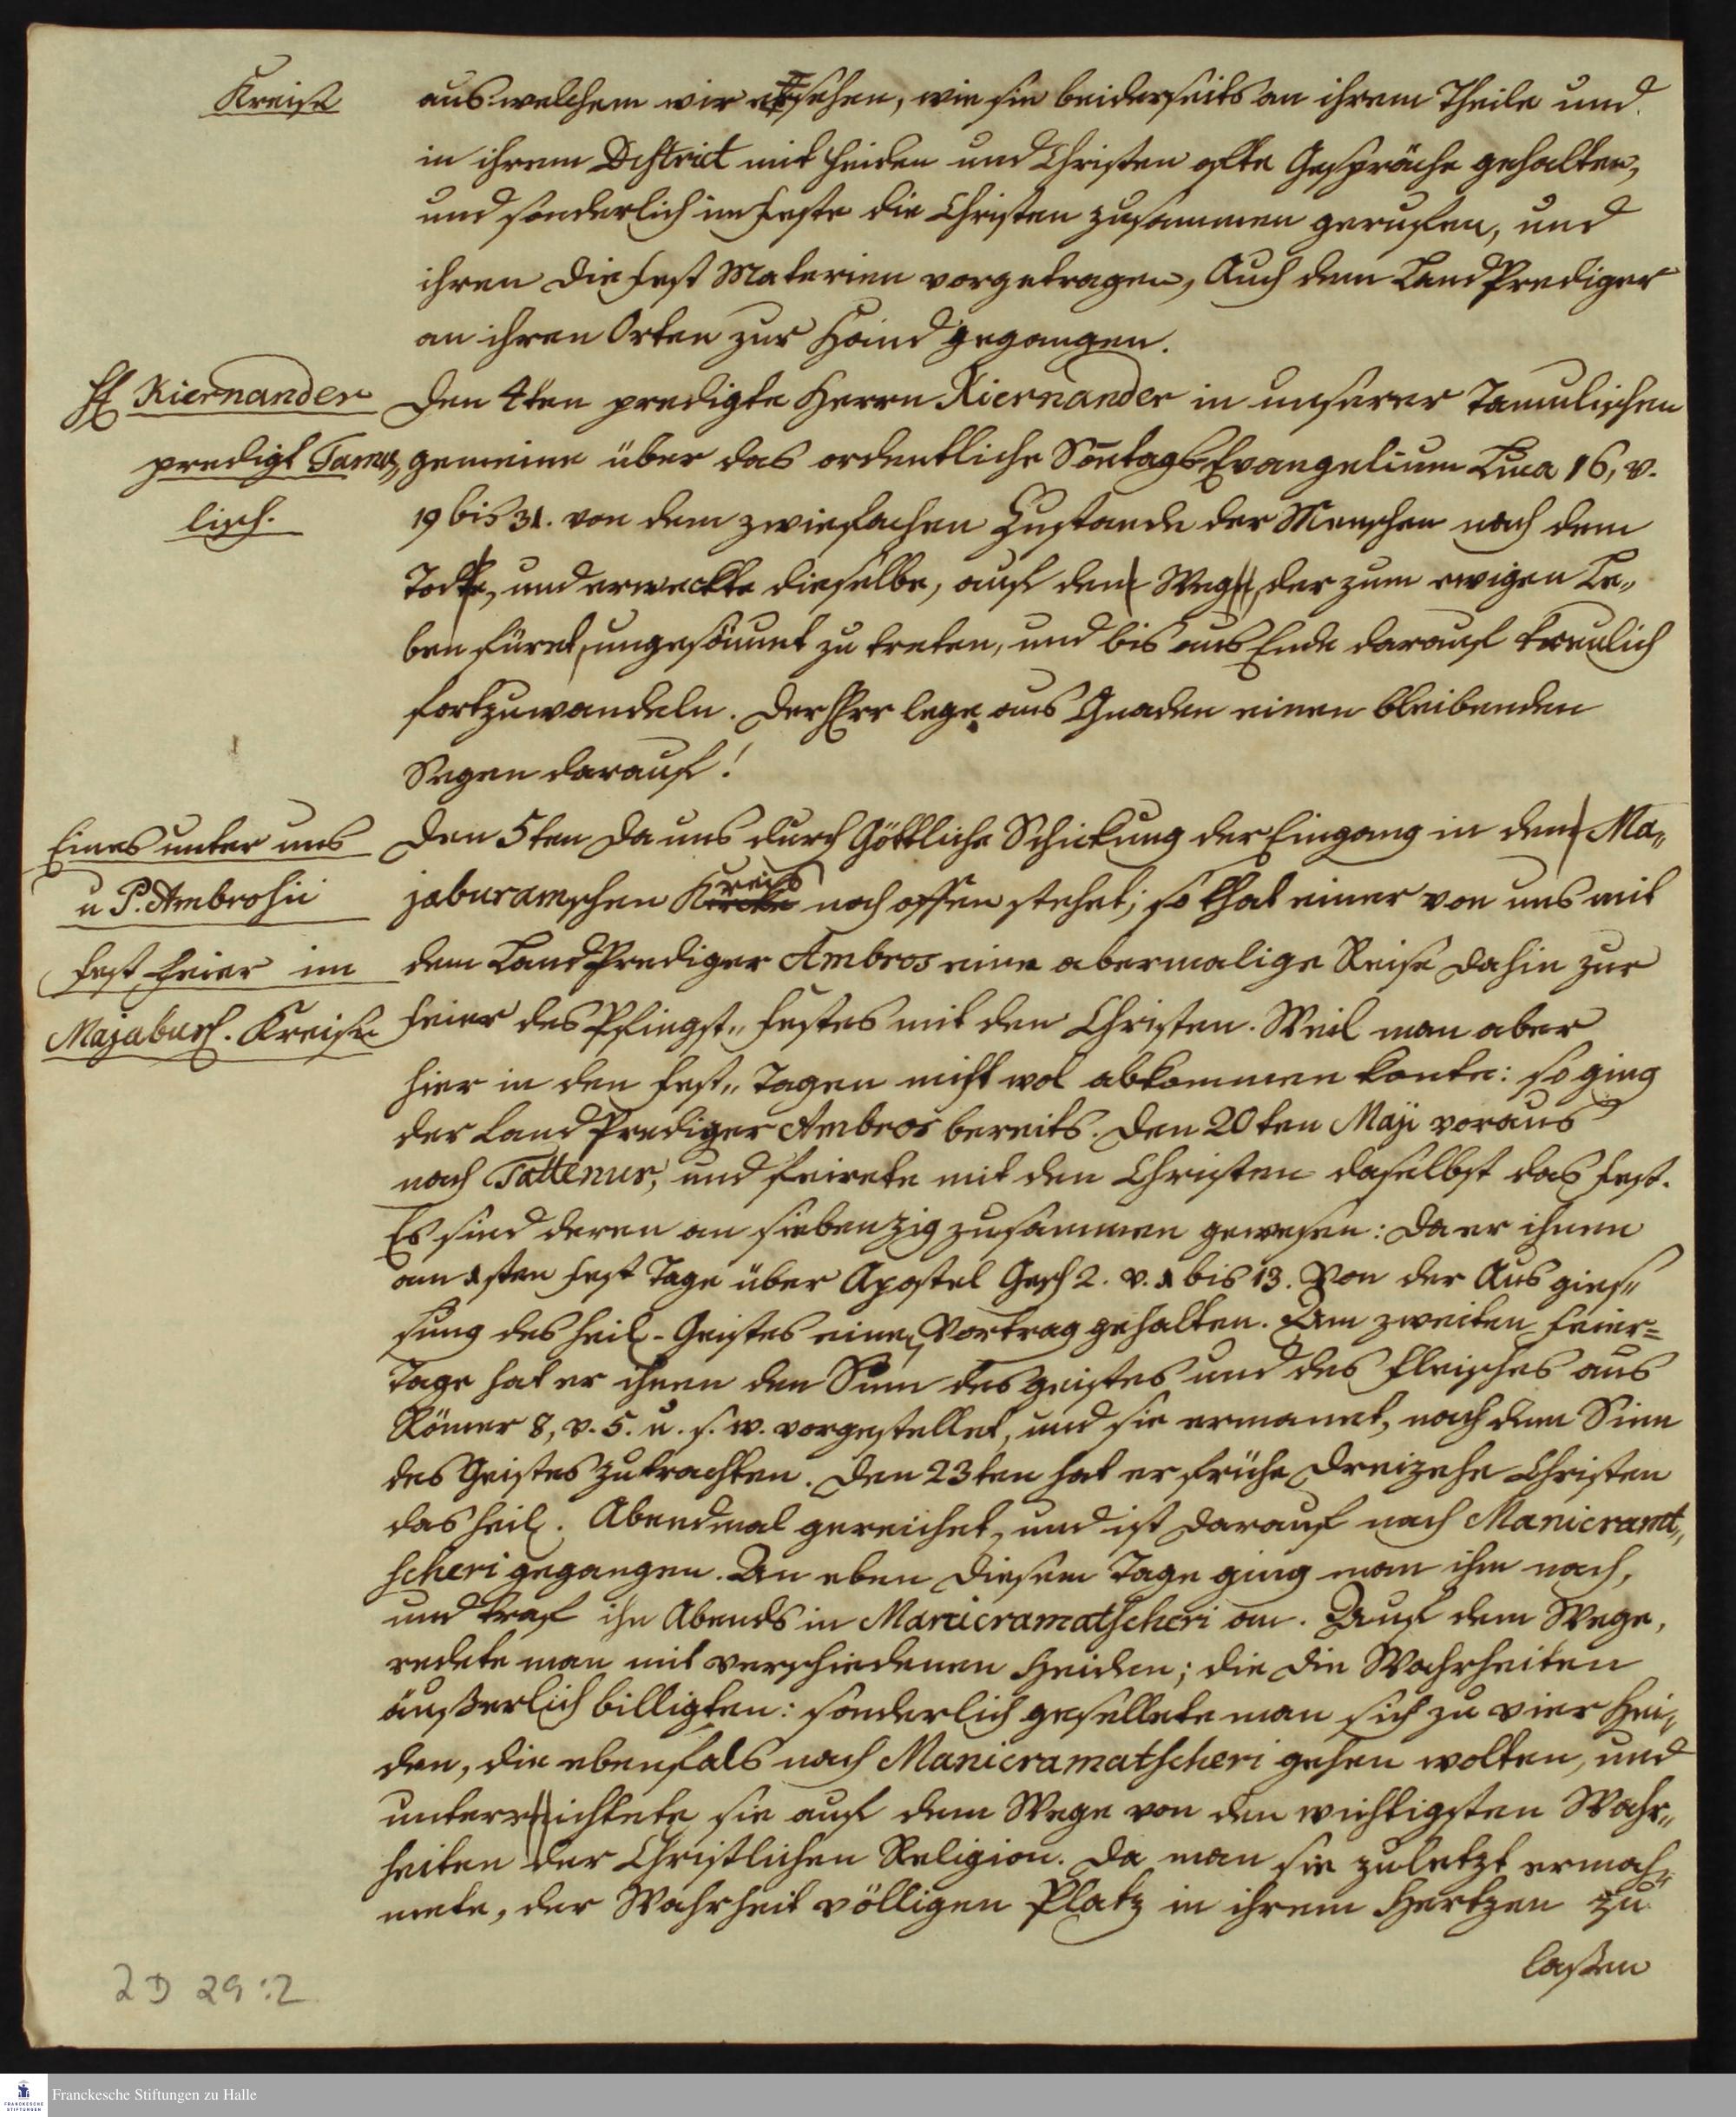 Kreise
aus welchem wir ersehen, wie sie beiderseits an ihrem Theile und
in ihrem District mit Heiden und Christen ofte Gespräche gehalten,
und sonderlich im Feste die Christen zusammen gerufen, und
ihnen die Fest Materien vorgetragen, Auch dem Land Prediger
an ihren Orten zur Hand gegangen.
H Kiernander
predigt Tamu„
lisch.
Den 4ten predigte Herrn Kiernander in unserer Tamulischen
gemeine über das ordentliche Sontags Evangelium Luca 16, v.
19 bis 31. von dem zwiefachen Zustande der Menschen nach dem
Tode, und erweckte dieselbe, auf den Weg, der zum ewigen Le„
ben füret, ungesäumt zu treten, und bis ans Ende darauf treulich
fortzuwandeln. Der HErr lege aus Gnaden einen bleibenden
Segen darauf!
Eines unter uns
u P. Ambrosii
Fest Feier im
Majabur. Kreise
Den 5ten da uns durch Göttliche Schickung der Eingang in den Ma„
jaburamschen Kreis noch offen stehet; so that einer von uns mit
dem Land Prediger Ambros eine abermalige Reise dahin zur
Feier des Pfingst„ Festes mit den Christen. Weil man aber
hier in den Fest„ Tagen nicht wol abkommen konte: so ging
der Land Prediger Ambros bereits. den 20ten Maji voraus
nach Tattenur, und feirete mit den Christen daselbst das Fest.
Es sind deren an siebenzig zusammen gewesen: da er ihnen
am 1sten Fest Tage über Apostel Gesch 2. v. 1 bis 13. Von der Aus gies„
sung des heil. Geistes einen Vortrag gehalten. Am zweiten Feier=
Tage hat er ihnen den Sinn des Geistes und des Fleisches aus
Römer 8, v. 5. u. s. w. vorgestellet, und sie ermanet, nach dem Sinn
des Geistes zu trachten. Den 23ten hat er frühe dreizehe Christen
das heil. Abendmal gereichet, und ist darauf nach Manicramt„
scheri gegangen. An eben diesem Tage ging man ihm nach,
und traf ihn Abends in Manicramatscheri an. Auf dem Wege,
redete man mit verschiedenen Heiden; die die Wahrheiten
äußerlich billigten: sonderlich gesellete man sich zu vier Hei„
den, die ebenfals nach Manicramatscheri gehen wolten, und
unterrichtete sie auf dem Wege von den wichtigsten Wahr„
heiten der Christlichen Religion. Da man sie zuletzt ermah„
nete, der Wahrheit völligen Platz in ihrem Hertzen zu
laßen
2 D 29:2
Franckesche Stiftungen zu Halle